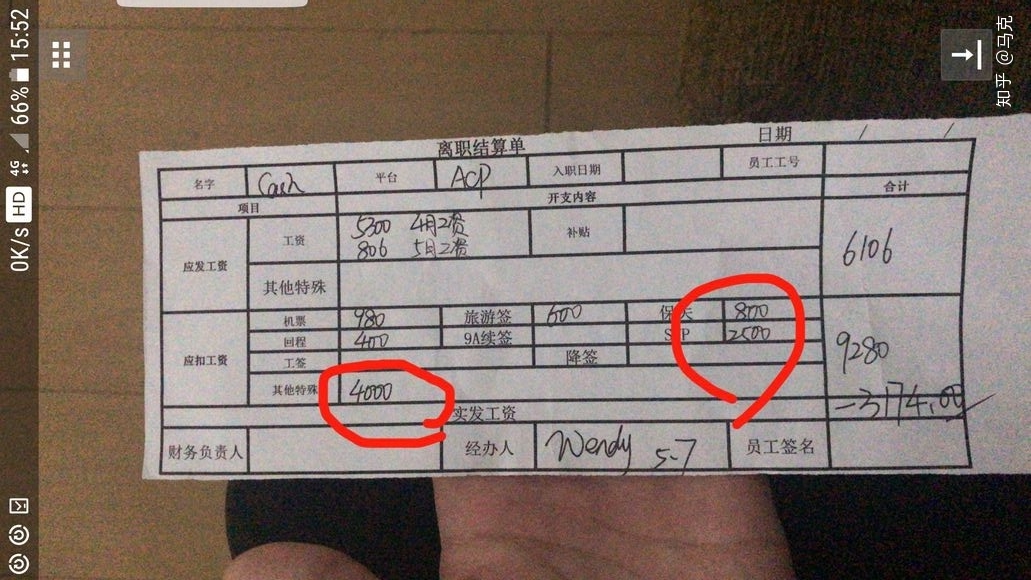 15:52
66%
4G
HD
0K/s
知乎 @马克
离职结算单
日期 / /
名字 Cash 平台 ACP 入职日期 员工工号
项目 开支内容 合计
应发工资 工资 5300 4月工资 补贴 6106
806 5月工资
其他特殊
应扣工资 机票 980 旅游签 600 保关 800 9280
回程 400 9A续签 2500
工签 降签
其他特殊 4000
实发工资 -3174.00
财务负责人 经办人 Wendy 5-7 员工签名